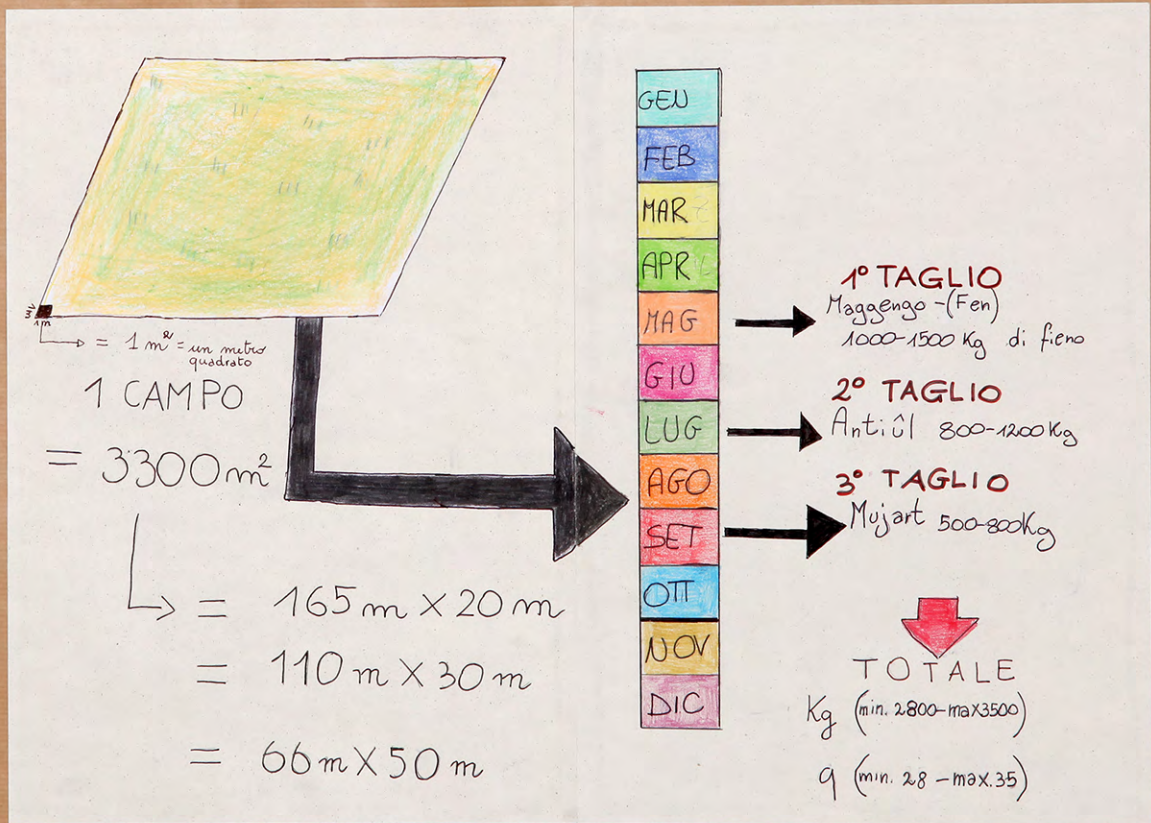 3m
1m
= 1 m² = un metro
quadrato
1 CAMPO
= 3300 m²
= 165 m X 20 m
= 110 m X 30 m
= 66 m X 50 m
GEN
FEB
MAR
APR
MAG
GIU
LUG
AGO
SET
OTT
NOV
DIC
1° TAGLIO
Maggengo - (Fen)
1000-1500 Kg di fieno
2° TAGLIO
Antiûl 800-1200 Kg
3° TAGLIO
Mujart 500-800 Kg
TOTALE
Kg (min. 2800 - max 3500)
q (min. 28 - max. 35)